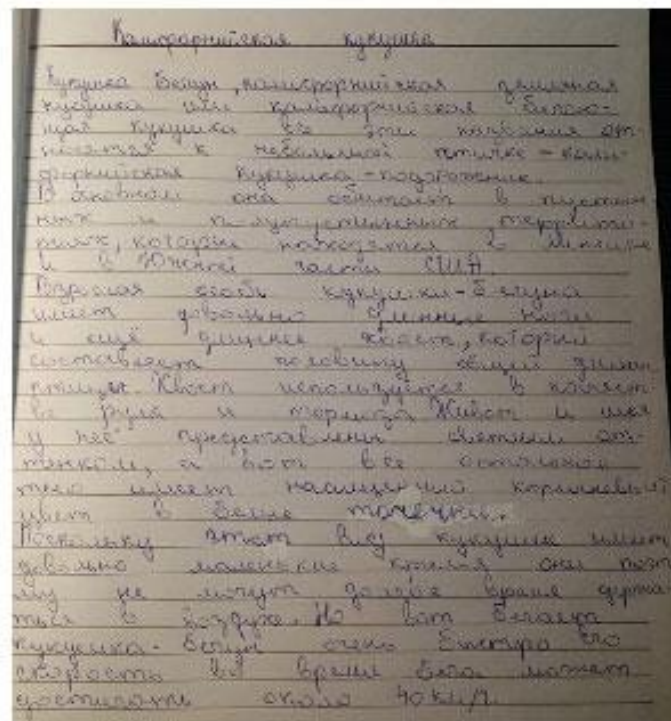 Калифорнийская кукушка
Кукушка бегун, калифорнийская земляная
кукушка или калифорнийская бегаю-
щая кукушка все эти названия от-
носятся к небольшой птичке - кали-
форнийская кукушка-подорожник.
В основном она обитает в пустын-
ных и полупустынных террито-
риях, которые находятся в Мексике
и в Южной части США.
Взрослая особь кукушки-бегуна
имеет довольно длинные ноги
и ещё длиннее хвост, который
составляет половину общей длины
птицы. Хвост используется в качест
ве руля и тормоза Живот и шея
у неё представлены светлым от-
тенком, а вот все остальное
тело имеет насыщенный коричневый
цвет в белые точечки.
Поскольку этот вид кукушки имеет
довольно маленькие крылья они поэто
му не могут долгое время держа
ться в воздухе. Но вот бегает
кукушка-бегун очень быстро его
скорость во время бега может
достигать около 40 км/ч.